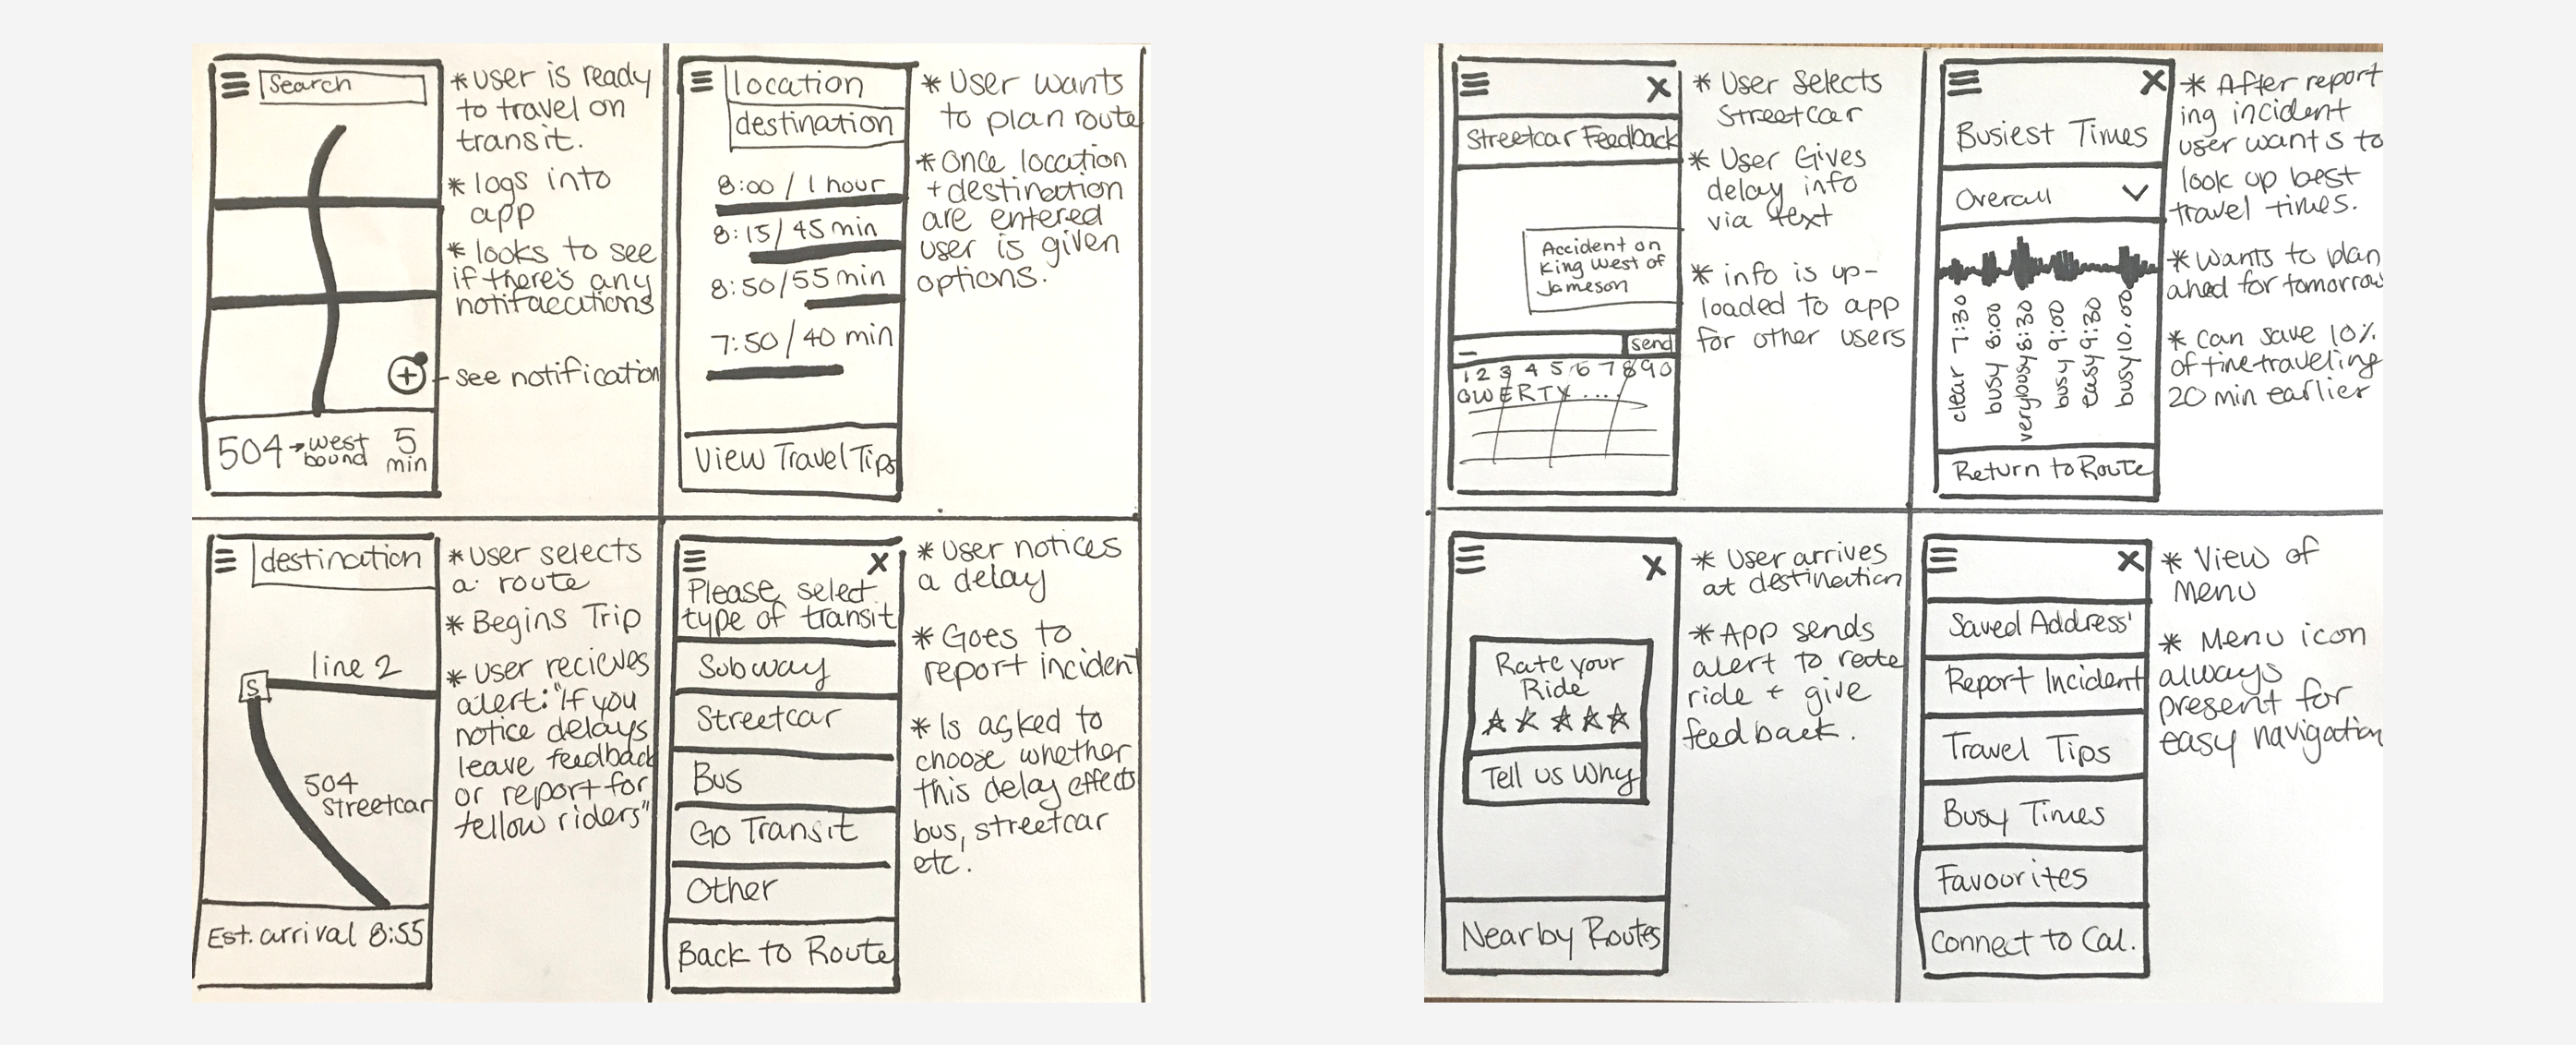 Search
* User is ready
to travel on
transit.
* logs into
app
* looks to see
if there's any
notifaecations
- see notification
504 → west
bound
5
min
location
destination
8:00 / 1 hour
8:15 / 45 min
8:50 / 55 min
7:50 / 40 min
View Travel Tips
* User wants
to plan route
* Once location
+ destination
are entered
user is given
options.
destination
line 2
S
504
Streetcar
Est. arrival 8:55
* User selects
a route
* Begins Trip
* User recieves
alert: "If you
notice delays
leave feedback
or report for
fellow riders"
X
Please select
type of transit
Subway
Streetcar
Bus
Go Transit
Other
Back to Route
* User notices
a delay
* Goes to
report incident
* Is asked to
choose whether
this delay effects
bus, streetcar
etc.
X
Streetcar Feedback
Accident on
King West of
Jameson
send
1 2 3 4 5 6 7 8 9 0
QWERTY....
* User Selects
Streetcar
* User Gives
delay info
via text
* info is up-
loaded to app
for other users
X
Busiest Times
Overall
clear 7:30
busy 8:00
very busy 8:30
busy 9:00
easy 9:30
busy 10:00
Return to Route
* After report
ing incident
user wants to
look up best
travel times.
* Wants to plan
ahed for tomorrow
* Can save 10%
of time traveling
20 min earlier
X
Rate your
Ride
Tell us Why
Nearby Routes
* User arrives
at destination
* App sends
alert to rate
ride + give
feedback.
X
Saved Address'
Report Incident
Travel Tips
Busy Times
Favourites
Connect to Cal.
* View of
Menu
* Menu icon
always
present for
easy navigation